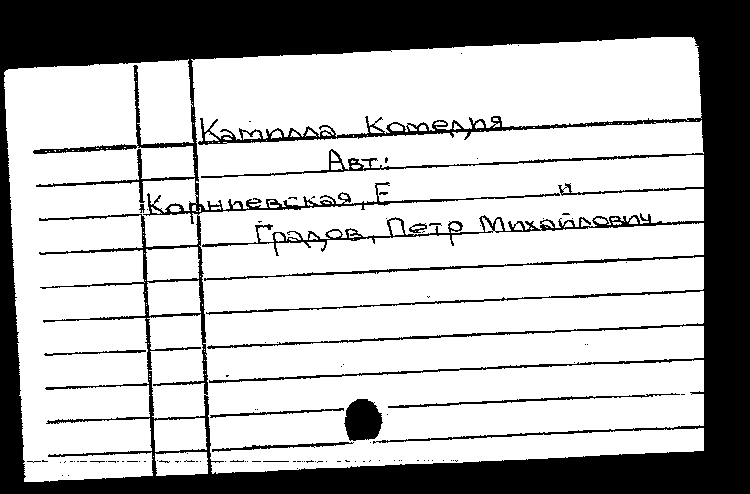 Камилла Комедия
Авт.:
Корниевская, Е и
Градов, Петр Михайлович